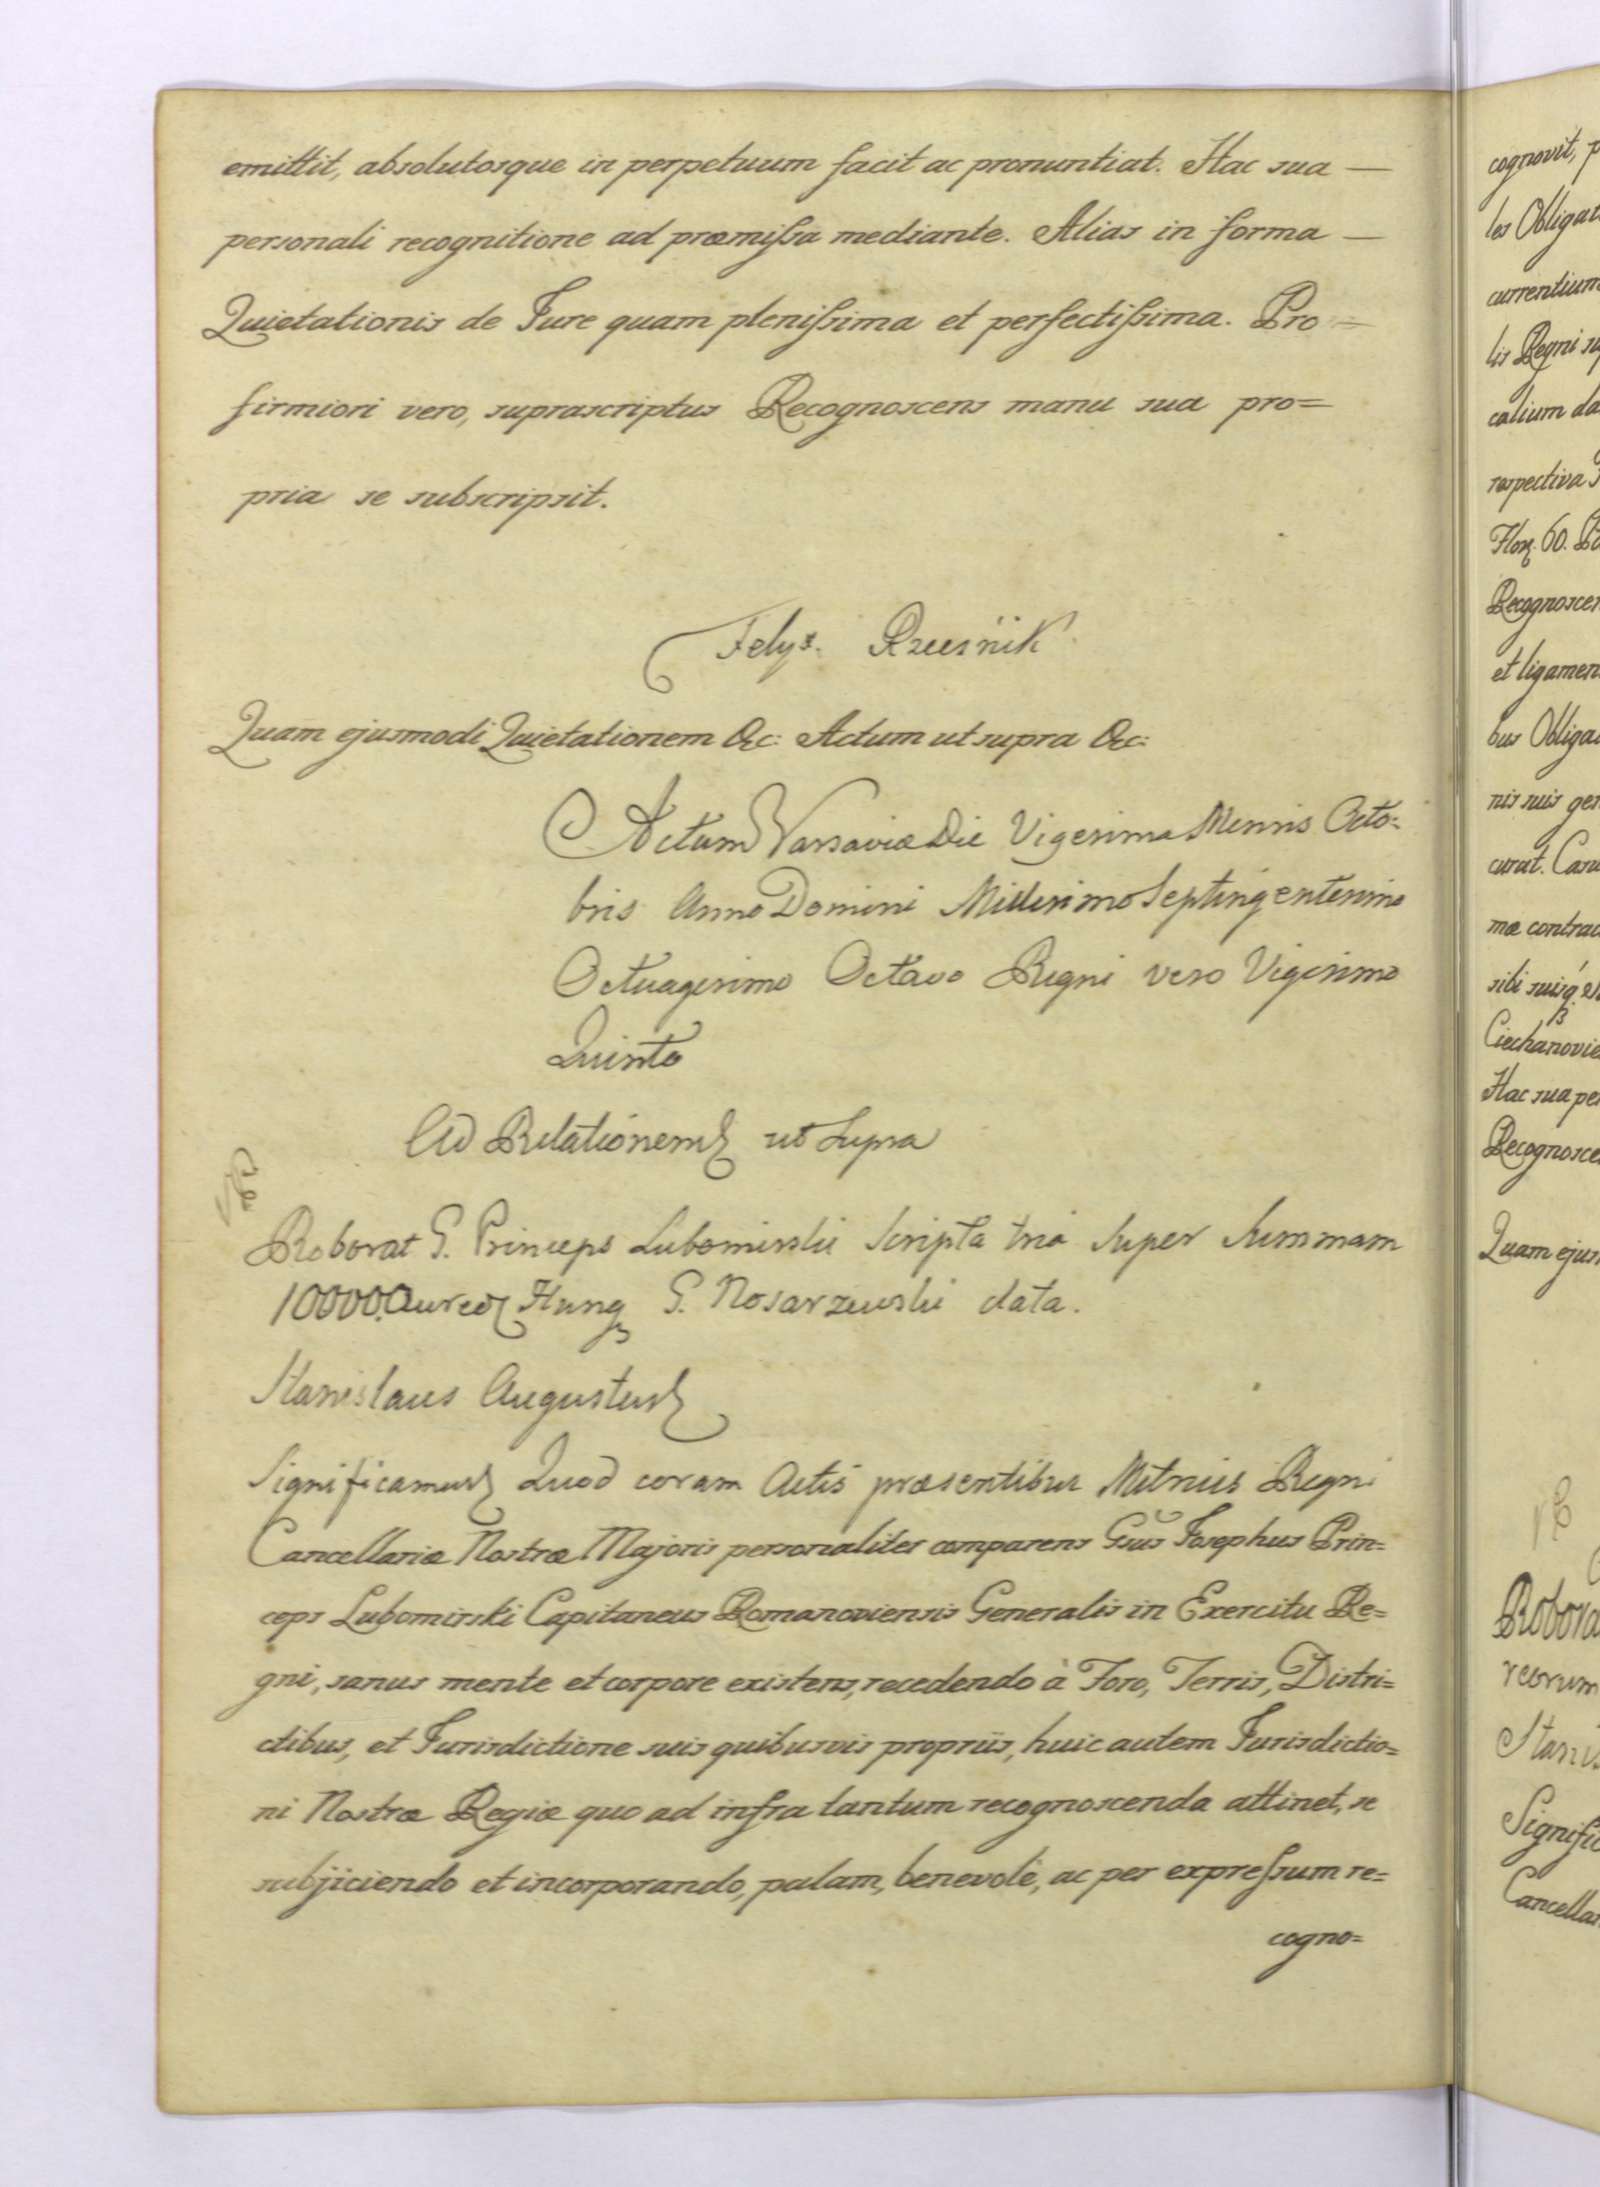 emittit, absolutosque in perpetuum facit ac pronuntiat. Hac sua —
personali recognitione ad præmissa mediante. Alias in forma —
Quietationis de Jure quam plenissima et perfectissima. Pro =
firmiori vero, suprascriptus Recognoscens manu sua pro=
pria se subscripsit.
Quam ejusmodi Quietationem &c: Actum ut supra &c:
Actum Varsaviæ Die Vigesima Mensis Octo=
bris Anno Domini Millesimo Septingentesimo
Octuagesimo Octavo Regni vero Vigesimo
Quinto
Ad Relationem ut Supra
Roborat G. Princeps Lubomirski Scripta tria Super Summam
10000. Aureo Hung G. Nosarzewski data.
Stanislaus Augustus
Significamus Quod coram Actis præsentibus Metrices Regni
Cancellariæ Nostræ Majoris personaliter comparens Gsus Josephus Prin=
ceps Lubomirski Capitaneus Romanoviensis Generalis in Exercitu Re=
gni, sanus mente et corpore existens, recedendo à Foro, Terris, Distri=
ctibus, et Jurisdictione suis quibusvis propriis, huic autem Jurisdictio=
ni Nostræ Regiæ quo ad infra tantum recognoscenda attinet, se
subjiciendo et incorporando, palam, benevolè, ac per expressum re=
cogno=
cognovit,
les
currentium
lis Regni
calium
respectiva
60.
et
bus
nis suis
curat.
mæ
sibi
Hac sua
Quam